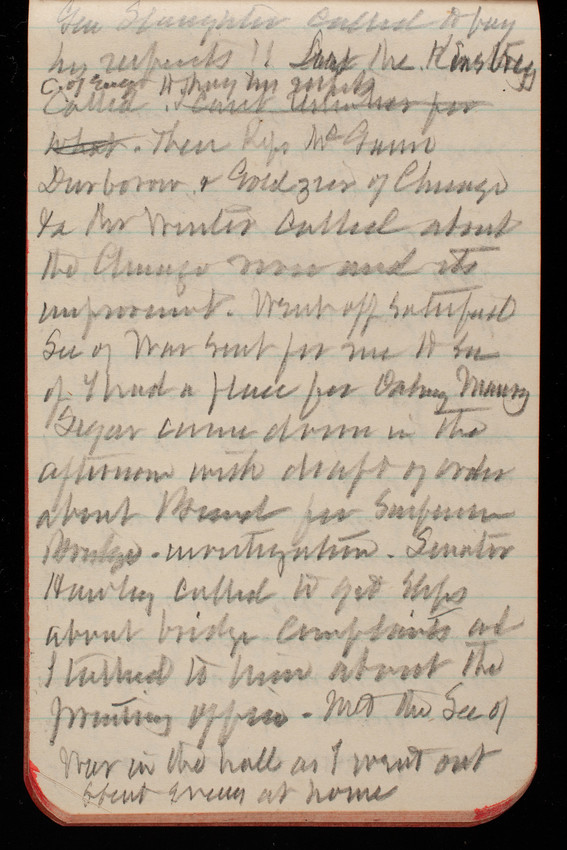 Gen Slaughter called to pay
his respects. Kingsbury
C. of Engrs to pay his respects
Called. for
what. Then Reps McGann
Durborow & Goldzier of Chicago
& Mr Winter called about
the Chicago river and its
improvement. Went off satisfied
Sec of War sent for me to see
if I had a place for Dabney Maury
Segar came down in the
afternoon with draft of order
about Board for Suspension
Bridge investigation. Senator
Hawley called to get Slips
about bridge complaints and
I talked to him about the
printing office - Met the Sec of
War in the hall as I went out
Spent evening at home